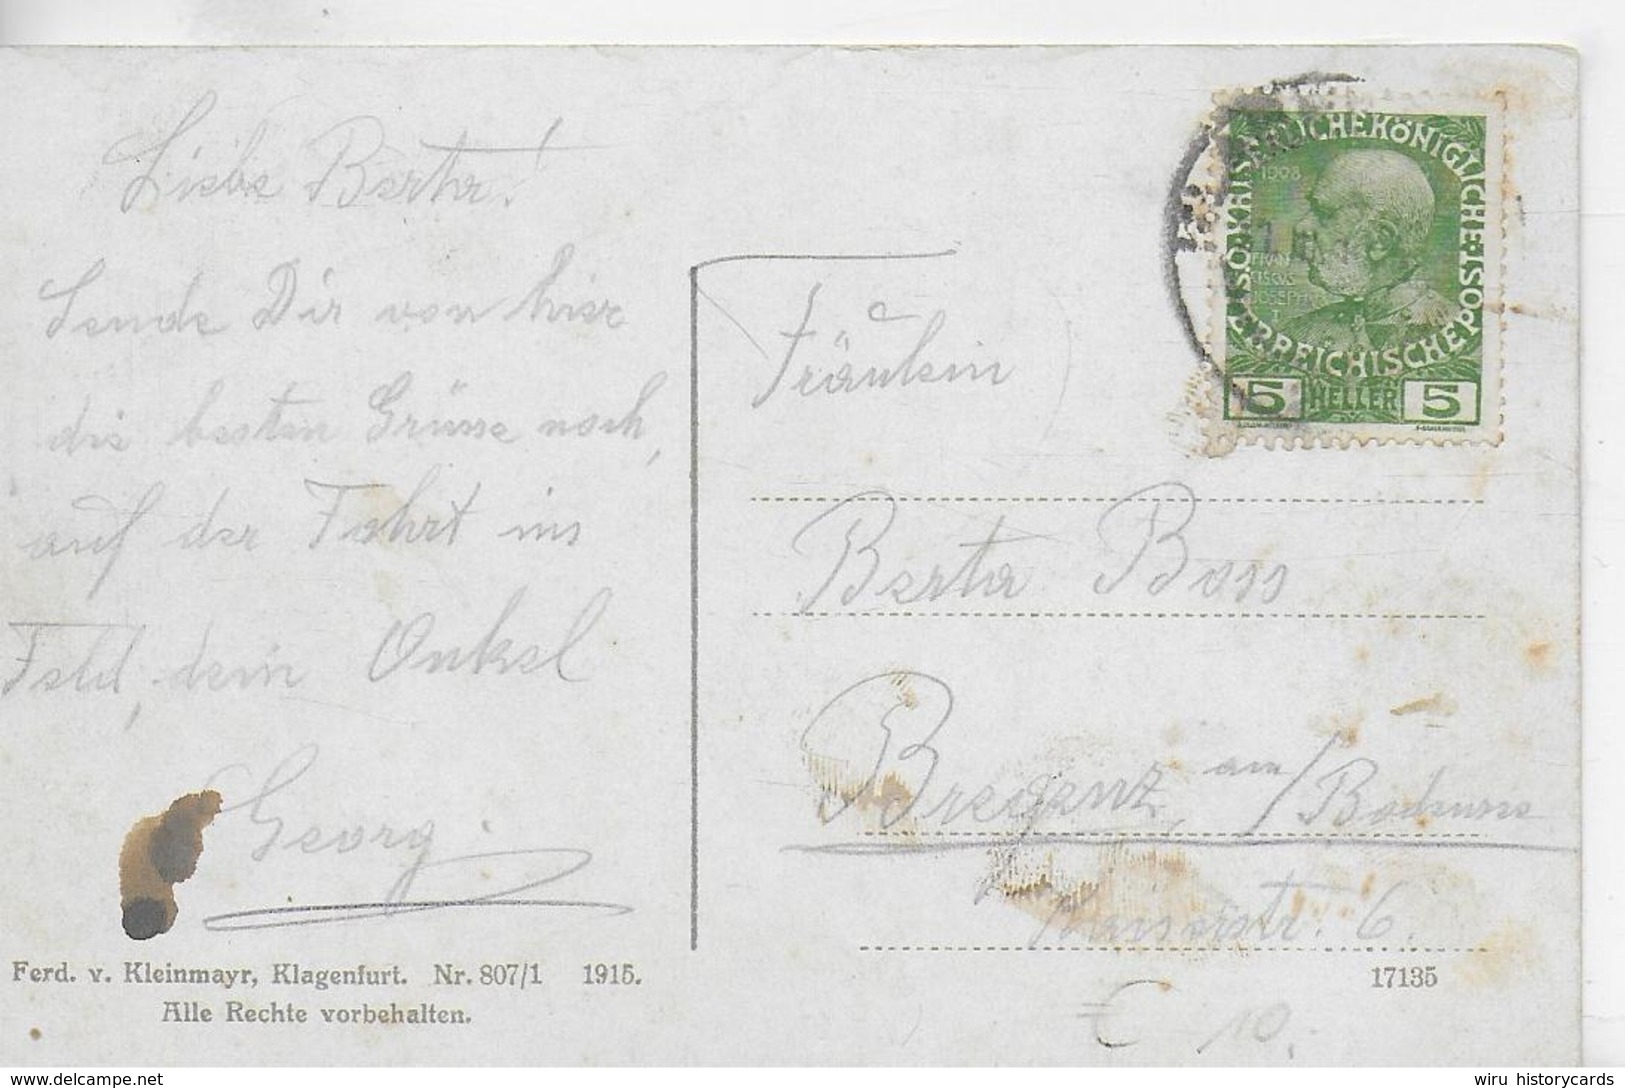 Liebe Berta!
Sende Dir von hier
die besten Grüsse noch,
auf der Fahrt ins
Feld, dein Onkel
Georg.
Ferd. v. Kleinmayr, Klagenfurt. Nr. 807/1 1915.
Alle Rechte vorbehalten.
KAISERLICHE KÖNIGLICHE ÖSTERREICHISCHE POST
1908
FRAN
CISCVS
IOSEPH
I
5 HELLER 5
Fräulein
Berta Boss
Bregenz am/Bodensee
Kaiserstr. 6.
17135
€ 10.
wiru historycards